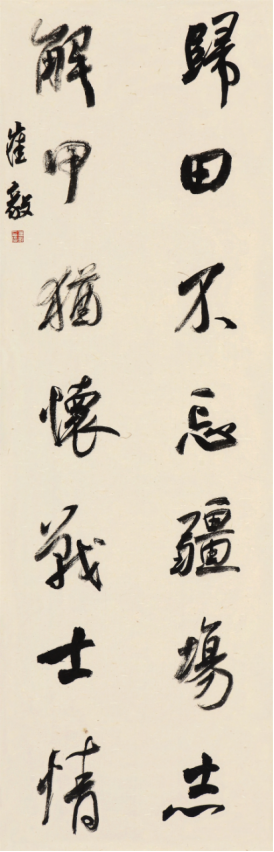 歸田不忘疆場志
解甲猶懷戰士情
崔毅